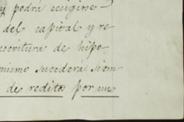 y podrá exigirse
del capital y re
escritura de hipo
mismo sucederá siem
de reditos por un